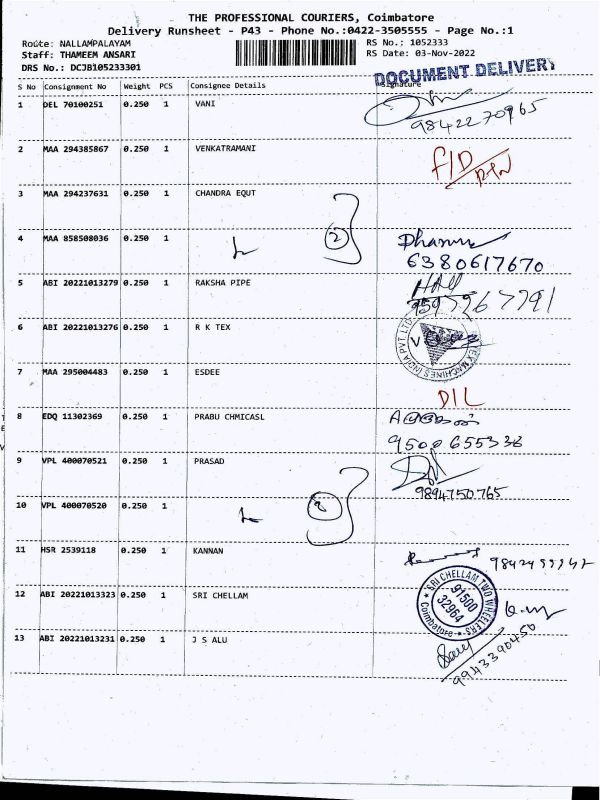 THE PROFESSIONAL COURIERS, Coimbatore
Delivery Runsheet - P43 - Phone No.:0422-3505555 - Page No.:1
Route: NALLAMPALAYAM
Staff: THAMEEM ANSARI
DRS No.: DCJB105233301
RS No.: 1052333
RS Date: 03-Nov-2022
DOCUMENT DELIVERY
S No Consignment No Weight PCS Consignee Details Signature
1 DEL 70100251 0.250 1 VANI
9842270965
2 MAA 294385867 0.250 1 VENKATRAMANI
F/D
3 MAA 294237631 0.250 1 CHANDRA EQUT
4 MAA 858508036 0.250 1
2
6380617670
5 ABI 20221013279 0.250 1 RAKSHA PIPE
6 ABI 20221013276 0.250 1 R K TEX
TEX MACHINES INDIA PVT LTD
7 MAA 295004483 0.250 1 ESDEE
D/L
8 EDQ 11302369 0.250 1 PRABU CHMICASL
9500655338
9 VPL 400070521 0.250 1 PRASAD
9894750765
10 VPL 400070520 0.250 1
11 HSR 2539118 0.250 1 KANNAN
12 ABI 20221013323 0.250 1 SRI CHELLAM
SRI CHELLAM TWO WHEELERS
91500
32964
Coimbatore
13 ABI 20221013231 0.250 1 J S ALU
9943390450